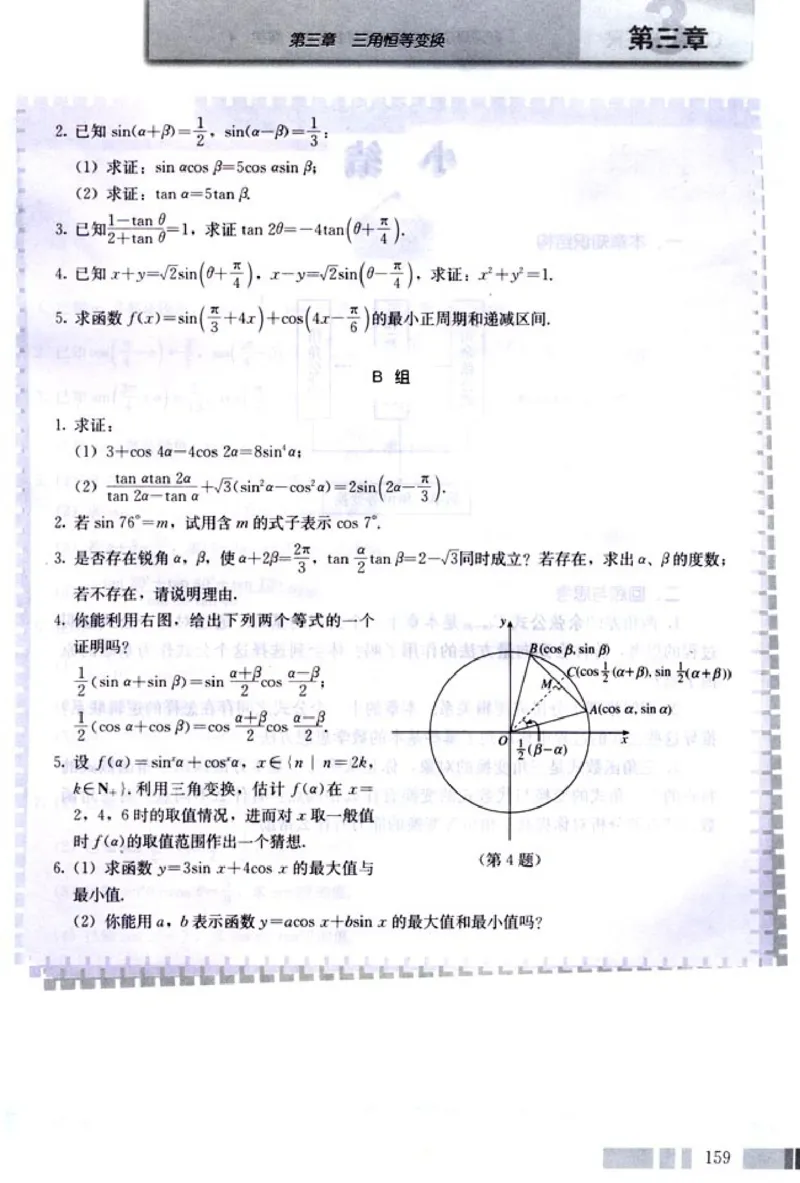 第三章 三角恒等变换
第三章
2. 已知 sin(α+β)=1/2, sin(α-β)=1/3:
(1) 求证: sin αcos β=5cos αsin β;
(2) 求证: tan α=5tan β.
3. 已知(1-tan θ)/(2+tan θ)=1, 求证 tan 2θ=-4tan(θ+π/4).
4. 已知 x+y=√2sin(θ+π/4), x-y=√2sin(θ-π/4), 求证: x²+y²=1.
5. 求函数 f(x)=sin(π/3+4x)+cos(4x-π/6)的最小正周期和递减区间.
B 组
1. 求证:
(1) 3+cos 4α-4cos 2α=8sin⁴α;
(2) (tan αtan 2α)/(tan 2α-tan α)+√3(sin²α-cos²α)=2sin(2α-π/3).
2. 若 sin 76°=m, 试用含 m 的式子表示 cos 7°.
3. 是否存在锐角 α, β, 使 α+2β=2π/3, tan α/2 tan β=2-√3同时成立? 若存在, 求出 α、β的度数;
若不存在, 请说明理由.
4. 你能利用右图, 给出下列两个等式的一个
证明吗?
1/2(sin α+sin β)=sin (α+β)/2 cos (α-β)/2;
1/2(cos α+cos β)=cos (α+β)/2 cos (α-β)/2.
y
B(cos β, sin β)
C(cos 1/2(α+β), sin 1/2(α+β))
M
A(cos α, sin α)
O
x
1/2(β-α)
(第 4 题)
5. 设 f(α)=sinˣα+cosˣα, x∈{n | n=2k,
k∈N₊}, 利用三角变换, 估计 f(α)在 x=
2, 4, 6 时的取值情况, 进而对 x 取一般值
时 f(α)的取值范围作出一个猜想.
6. (1) 求函数 y=3sin x+4cos x 的最大值与
最小值.
(2) 你能用 a, b 表示函数 y=acos x+bsin x 的最大值和最小值吗?
159